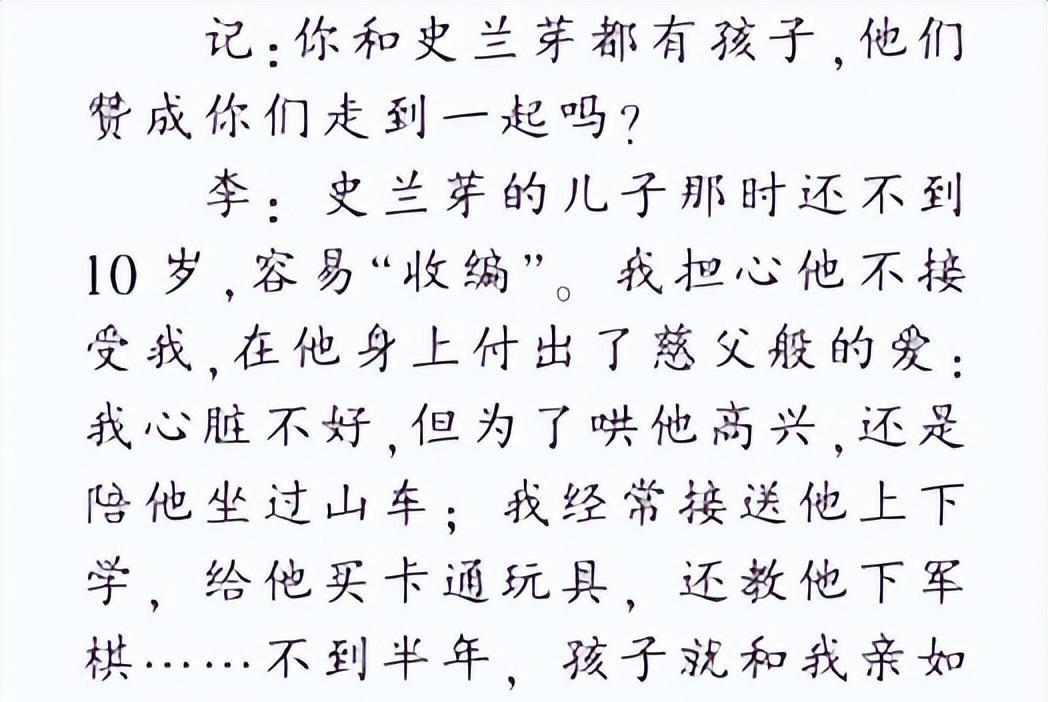 记:你和史兰芽都有孩子,他们
赞成你们走到一起吗?
李:史兰芽的儿子那时还不到
10岁,容易“收编”。我担心他不接
受我,在他身上付出了慈父般的爱:
我心脏不好,但为了哄他高兴,还是
陪他坐过山车;我经常接送他上下
学,给他买卡通玩具,还教他下军
棋……不到半年,孩子就和我亲如